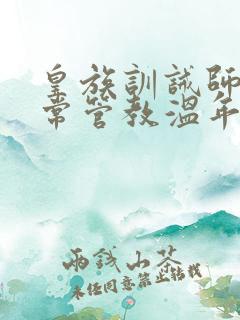 皇族訓誡師
常管教溫年
兩錢山茶
未经同意禁止转载